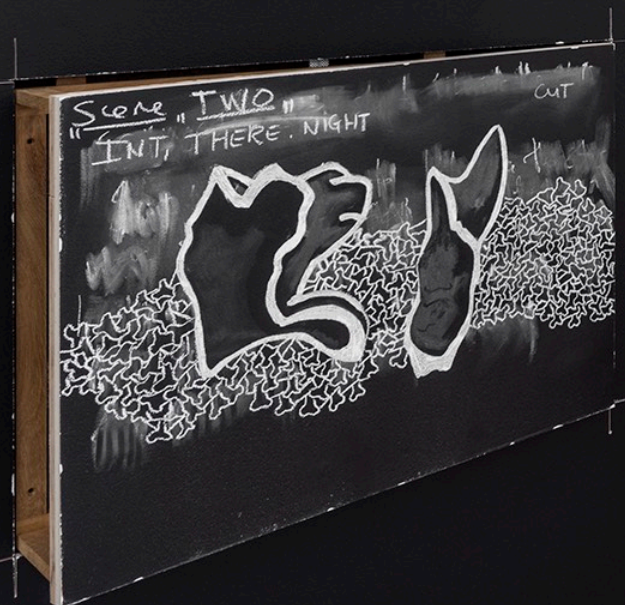 "Scene TWO"
INT, THERE. NIGHT
CUT